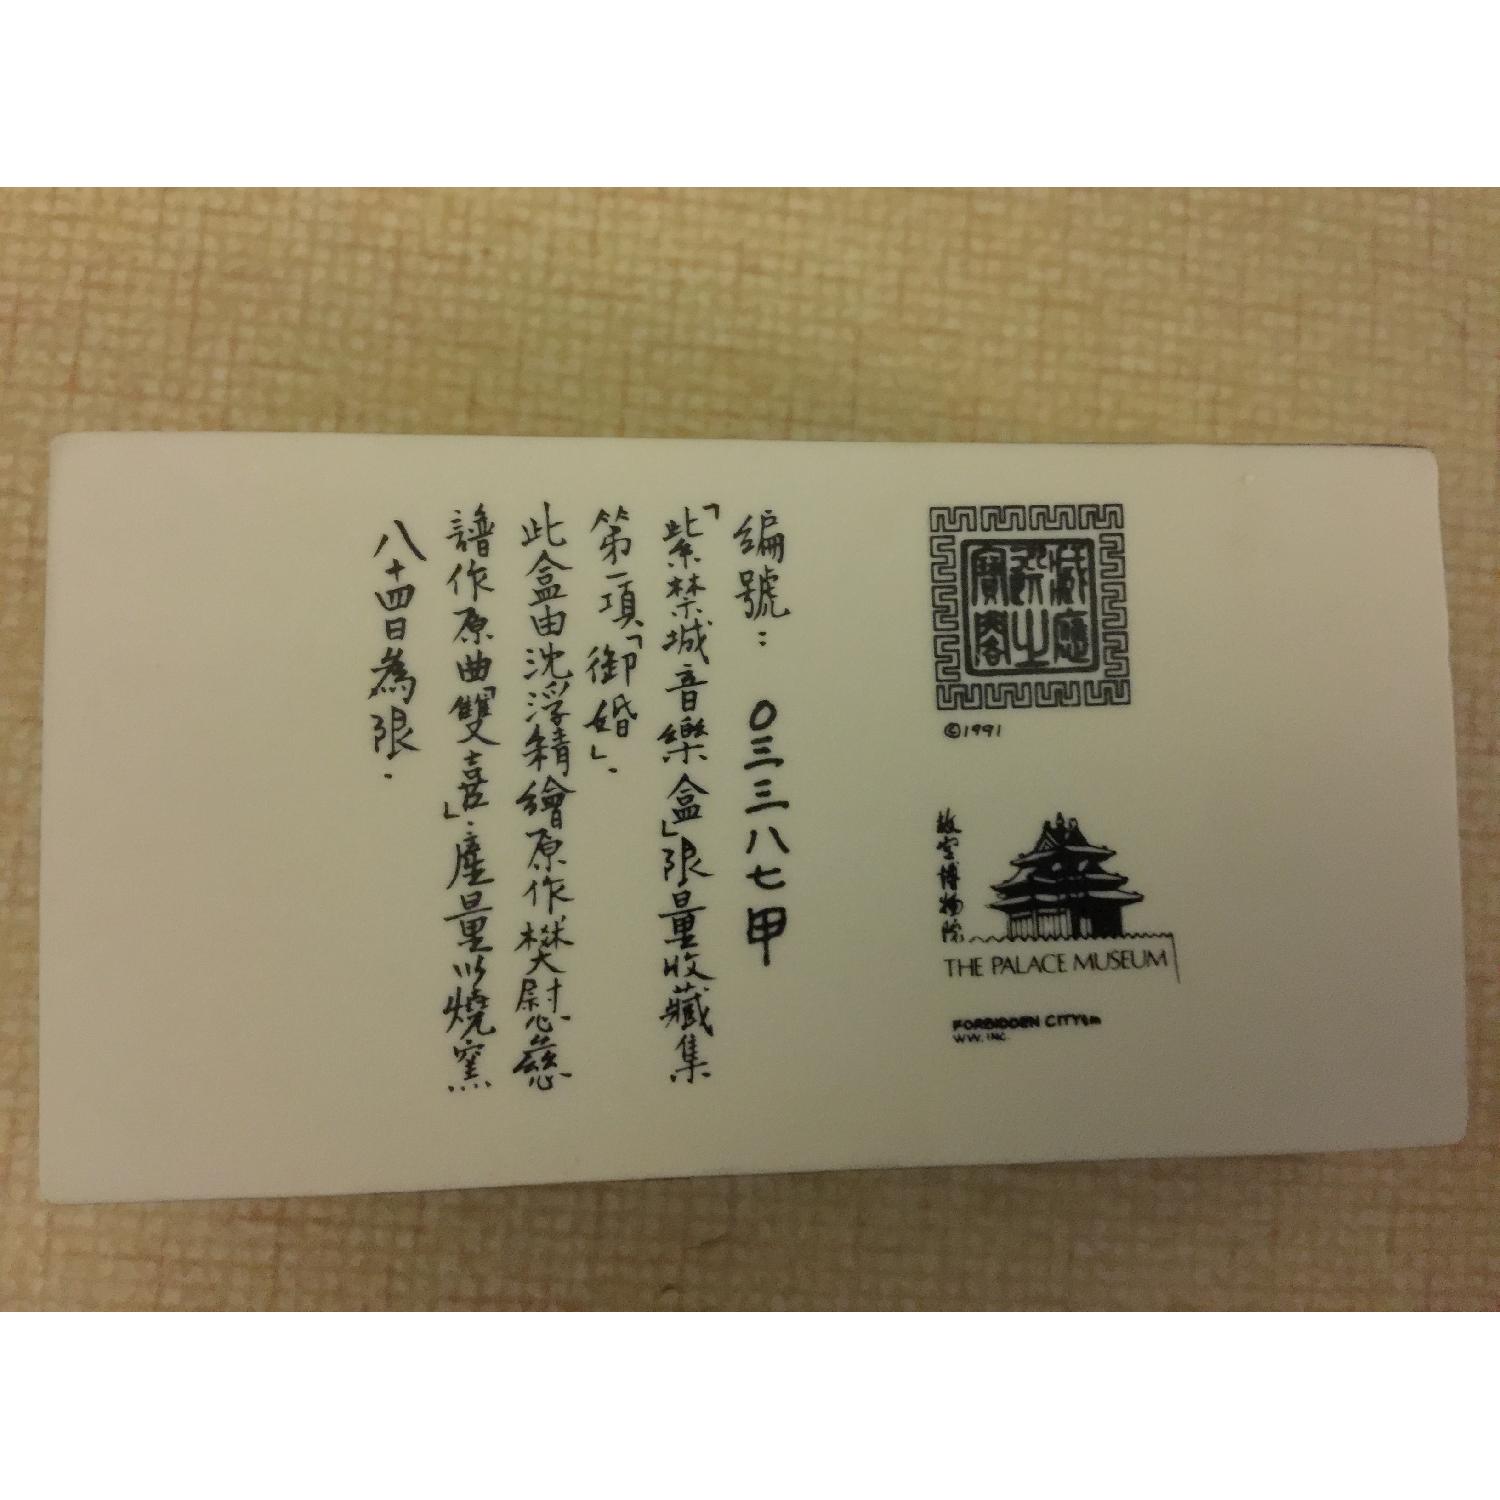 ©1991
故宮博物院
THE PALACE MUSEUM
FORBIDDEN CITY sm
WW. INC.
編號：0三三八七甲
「紫禁城音樂盒」限量收藏集
第一項「御婚」.
此盒由沈浮精繪原作樊慰慈
譜作原曲「雙喜」.產量以燒窯
八十四日為限.